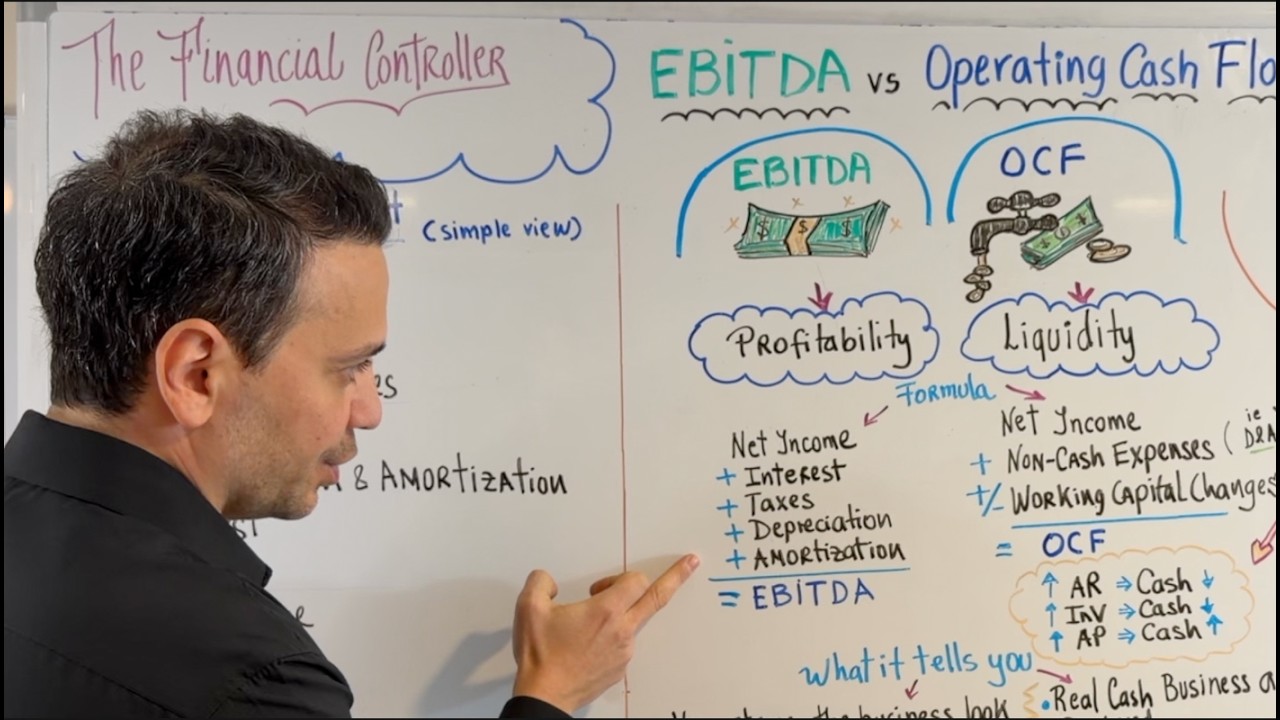 The Financial Controller
(simple view)
& Amortization
EBITDA vs Operating Cash Flo
EBITDA
OCF
Profitability
Liquidity
Formula
Net Income
+ Interest
+ Taxes
+ Depreciation
+ Amortization
= EBITDA
Net Income
+ Non-Cash Expenses (ie D&A
+/- Working Capital Changes
= OCF
↑ AR ⇒ Cash ↓
↑ Inv ⇒ Cash ↓
↑ AP ⇒ Cash ↑
What it tells you
the business look
• Real Cash Business